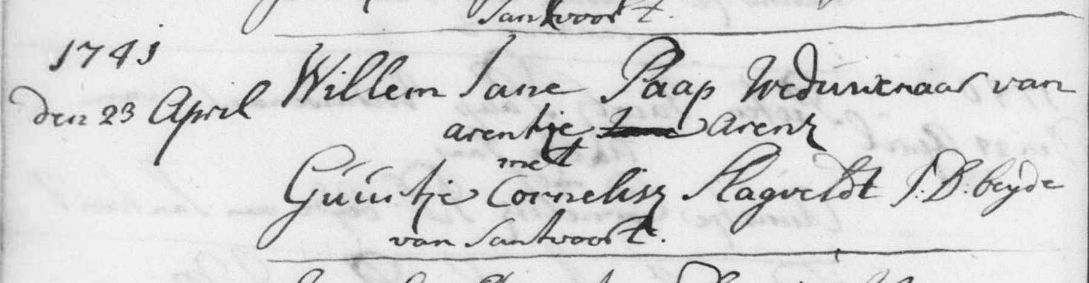 Santvoort.
1741
den 23 April
Willem Jane Paap Weduwenaar van
arentje Arenz
met
Guurtje Cornelisz Slagveldt J.D. beyde
van Santvoort.